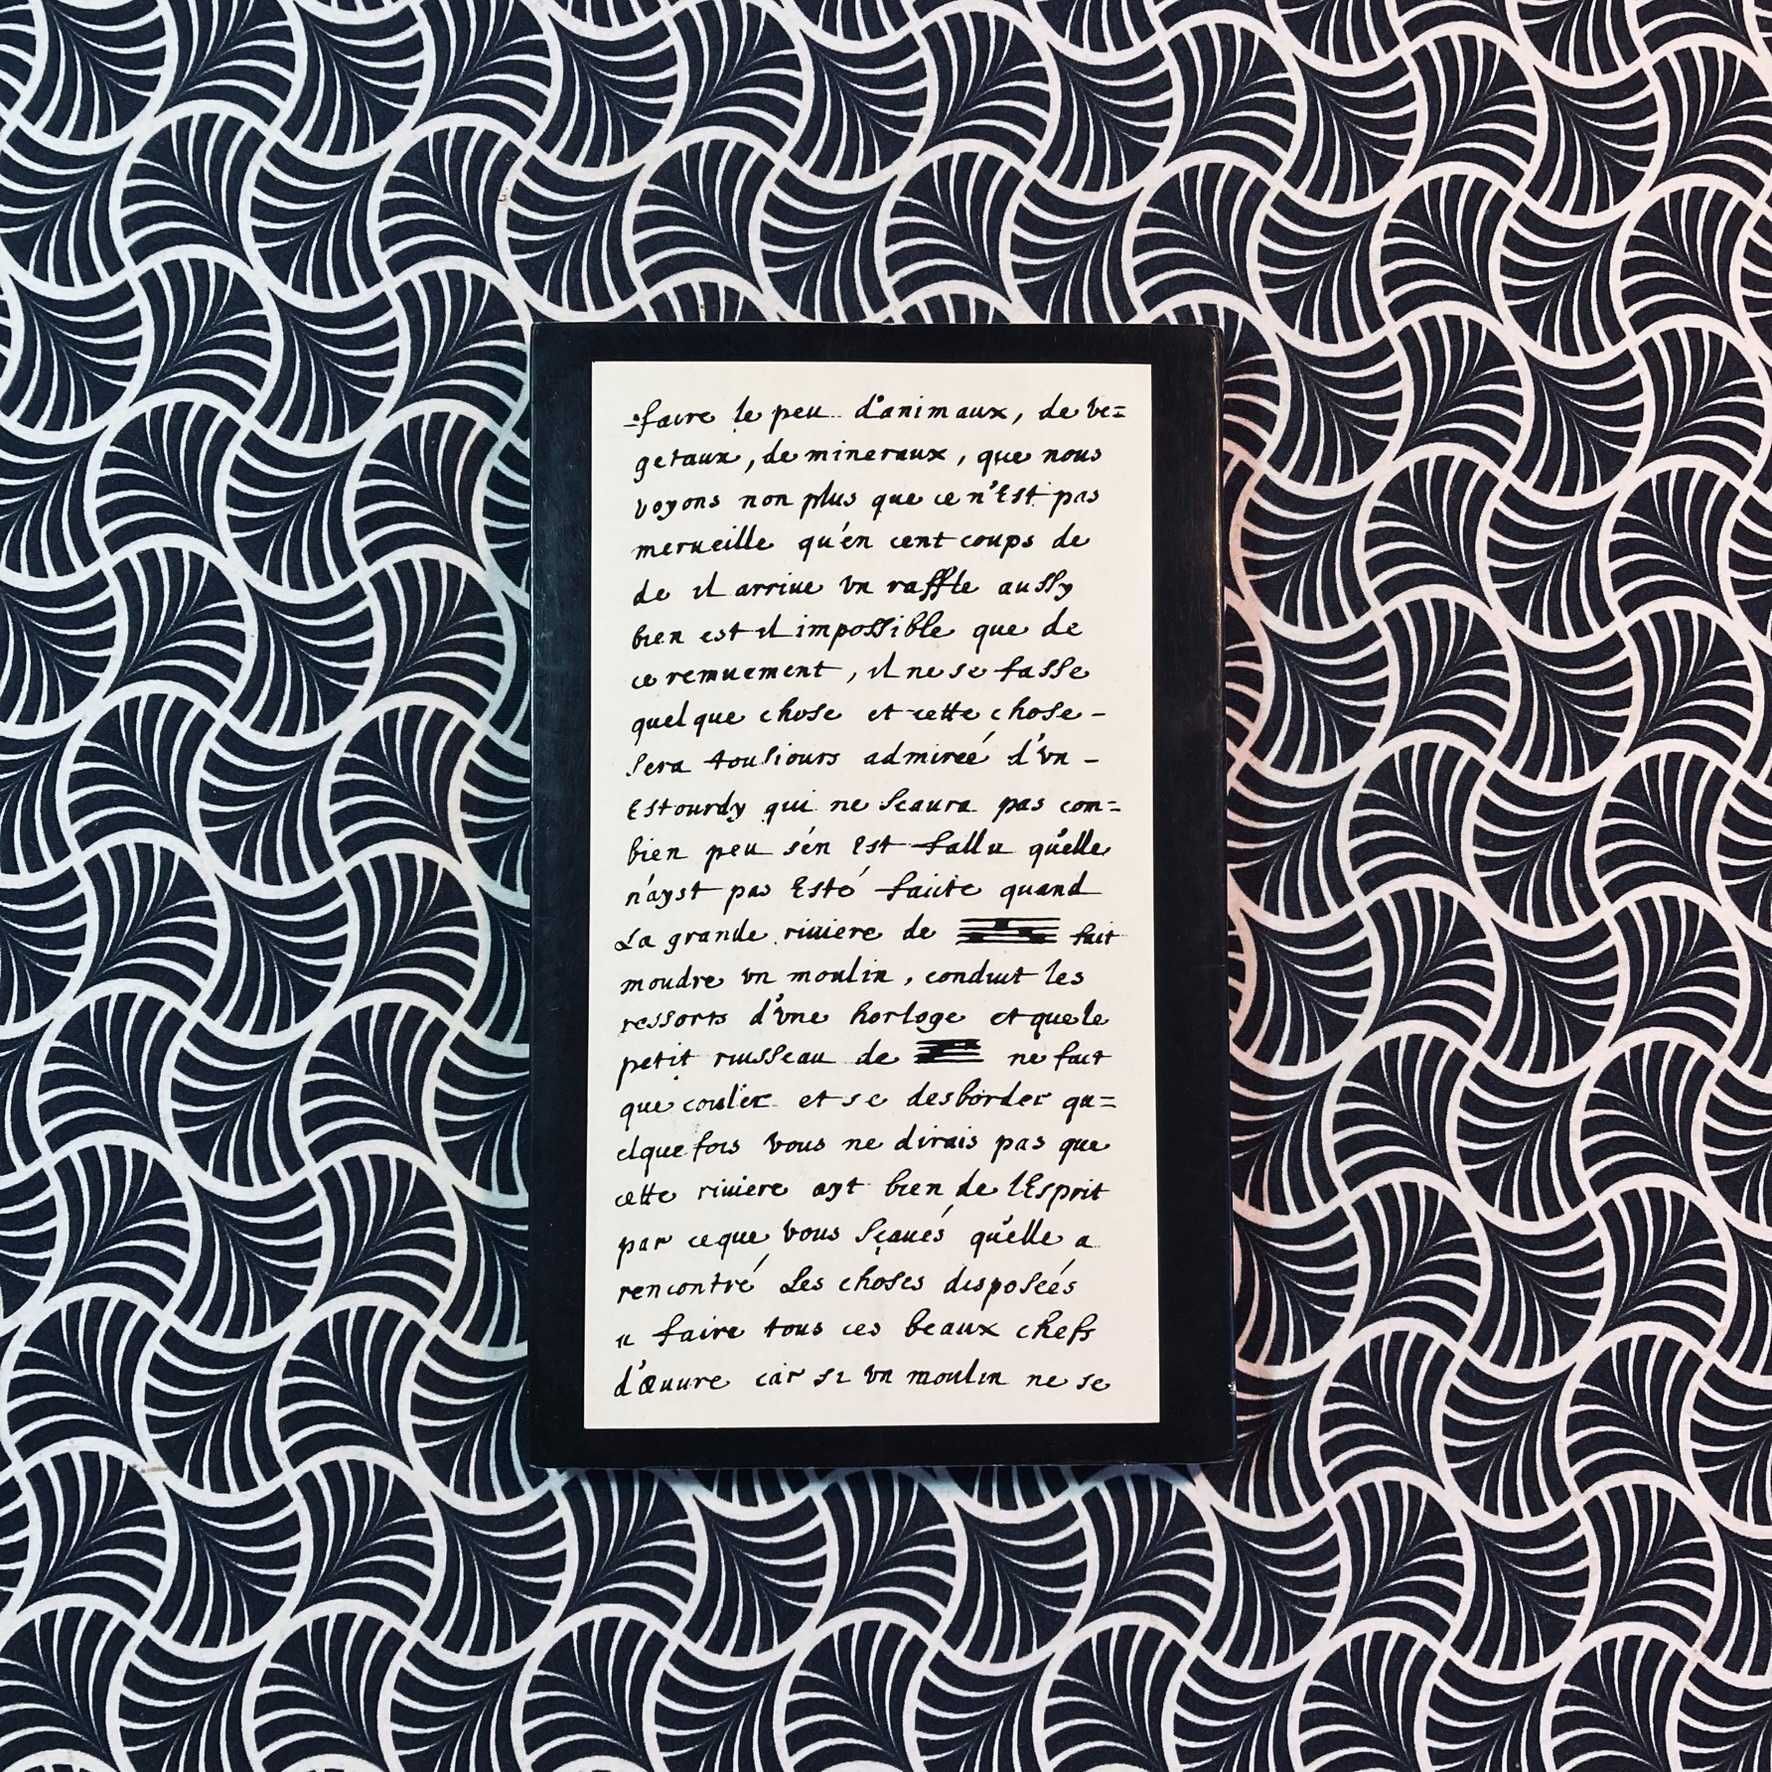 -faire le peu d'animaux, de ve=
getaux, de mineraux, que nous
voyons non plus que ce n'Est pas
merueille qu'en cent coups de
de il arriue vn raffle aussy
bien est il impossible que de
ce remuement, il ne se fasse
quelque chose et cette chose -
sera tousiours admireé d'vn -
Estourdy qui ne scaura pas com=
bien peu s'en Est fallu qu'elle
n'ayst pas Esté faitte quand
La grande riuiere de fait
moudre vn moulin, conduit les
ressorts d'vne horloge et que le
petit ruisseau de ne fait
que couler et se desborder qu=
elque fois vous ne dirais pas que
cette riuiere ayt bien de l'Esprit
par ce que vous sçaués qu'elle a
rencontré Les choses disposeés
a faire tous ces beaux chefs
d'œuure car si vn moulin ne se